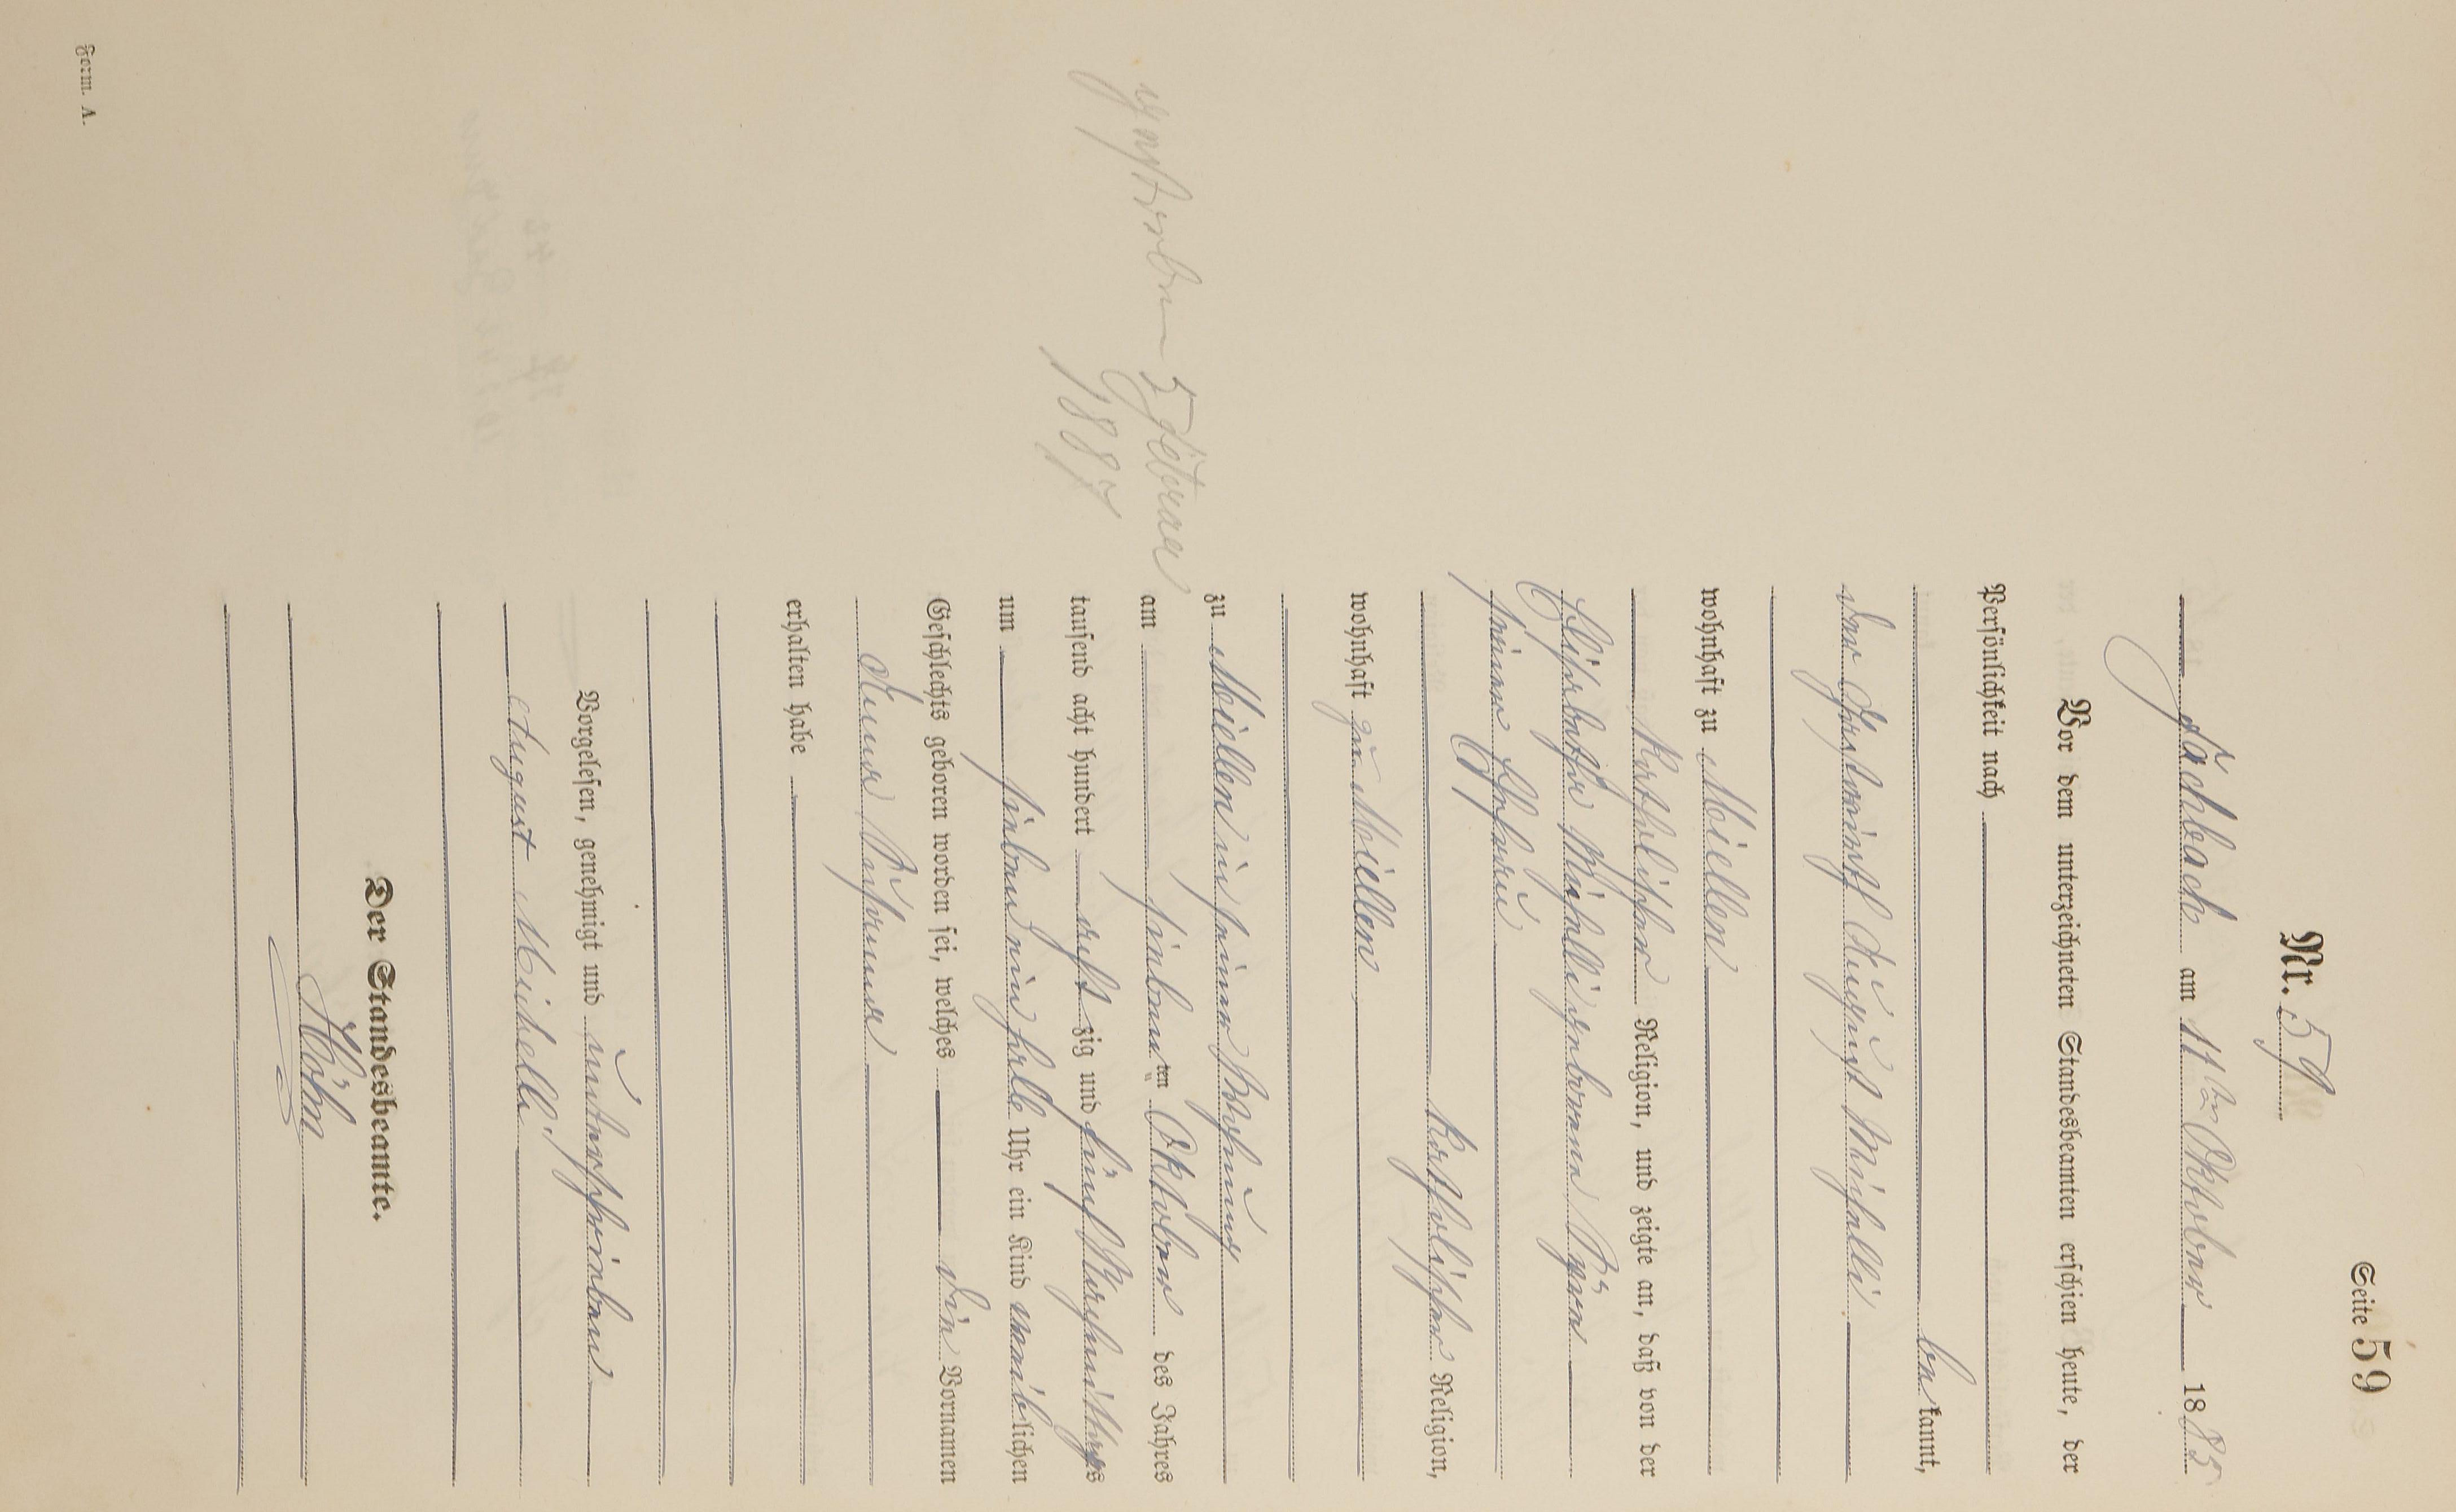 Seite 59
Nr. 59
Fachbach am 11ten Oktober 1885
Vor dem unterzeichneten Standesbeamten erschien heute, der
Persönlichkeit nach
bekannt,
der August Michelli
wohnhaft zu Miellen
katholischer Religion, und zeigte an, daß von der
Elisabetha Michelli geborene
seiner Ehefrau
katholischer Religion,
wohnhaft zu Miellen
zu Miellen in seiner Wohnung
am siebenten ten Oktober des Jahres
tausend acht hundert achtzig und fünf Vormittags
um sieben ein halb Uhr ein Kind weiblichen
Geschlechts geboren worden sei, welches die Vornamen
Anna Johanna
erhalten habe
gestorben 5 Februar
1887
Vorgelesen, genehmigt und unterschrieben
August Michelli
Der Standesbeamte.
Höhn
Form. A.